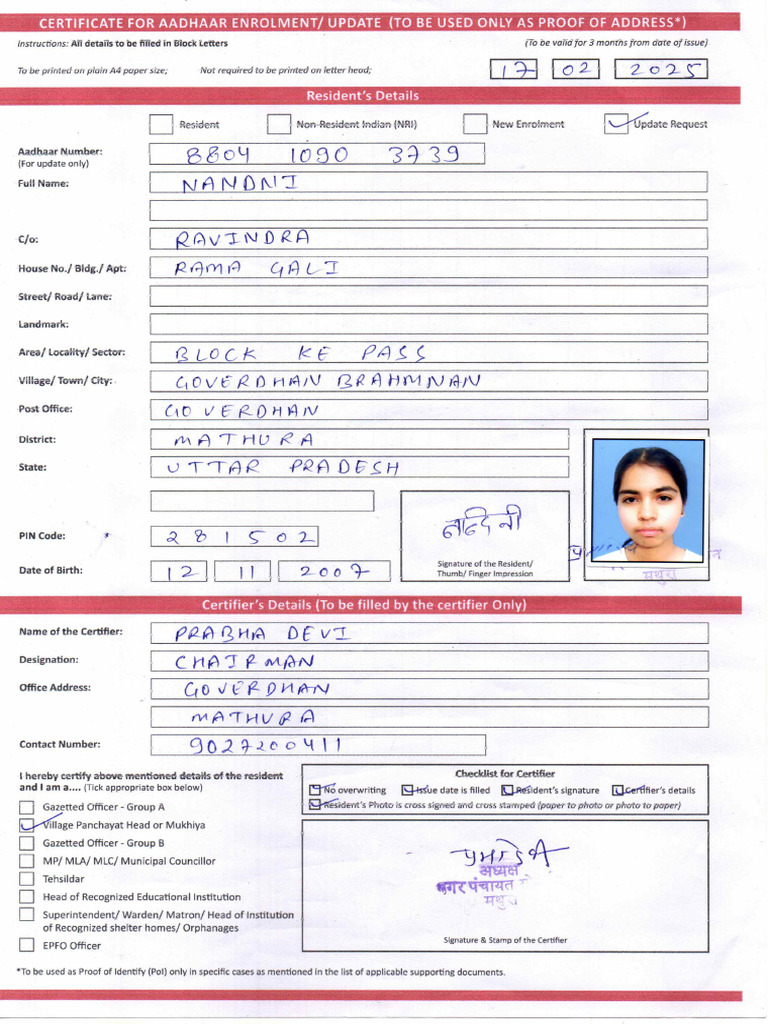 CERTIFICATE FOR AADHAAR ENROLMENT/ UPDATE (TO BE USED ONLY AS PROOF OF ADDRESS*)
Instructions: All details to be filled in Block Letters (To be valid for 3 months from date of issue)
To be printed on plain A4 paper size; Not required to be printed on letter head; 17 02 2025
Resident's Details
Resident Non-Resident Indian (NRI) New Enrolment Update Request
Aadhaar Number: 8804 1090 3739
(For update only)
Full Name: NANDNI
C/o: RAVINDRA
House No./ Bldg./ Apt: RAMA GALI
Street/ Road/ Lane:
Landmark:
Area/ Locality/ Sector: BLOCK KE PASS
Village/ Town/ City: GOVERDHAN BRAHMNAN
Post Office: GOVERDHAN
District: MATHURA
State: UTTAR PRADESH
नन्दिनी
PIN Code: 281502
Signature of the Resident/
Thumb/ Finger Impression
मथुरा
Date of Birth: 12 11 2007
Certifier's Details (To be filled by the certifier Only)
Name of the Certifier: PRABHA DEVI
Designation: CHAIRMAN
Office Address: GOVERDHAN
MATHURA
Contact Number: 9027200411
I hereby certify above mentioned details of the resident
and I am a.... (Tick appropriate box below)
Gazetted Officer - Group A
Village Panchayat Head or Mukhiya
Gazetted Officer - Group B
MP/ MLA/ MLC/ Municipal Councillor
Tehsildar
Head of Recognized Educational Institution
Superintendent/ Warden/ Matron/ Head of Institution
of Recognized shelter homes/ Orphanages
EPFO Officer
Checklist for Certifier
No overwriting Issue date is filled Resident's signature Certifier's details
Resident's Photo is cross signed and cross stamped (paper to photo or photo to paper)
प्रभादेवी
अध्यक्ष
नगर पंचायत
मथुरा
Signature & Stamp of the Certifier
*To be used as Proof of Identify (PoI) only in specific cases as mentioned in the list of applicable supporting documents.